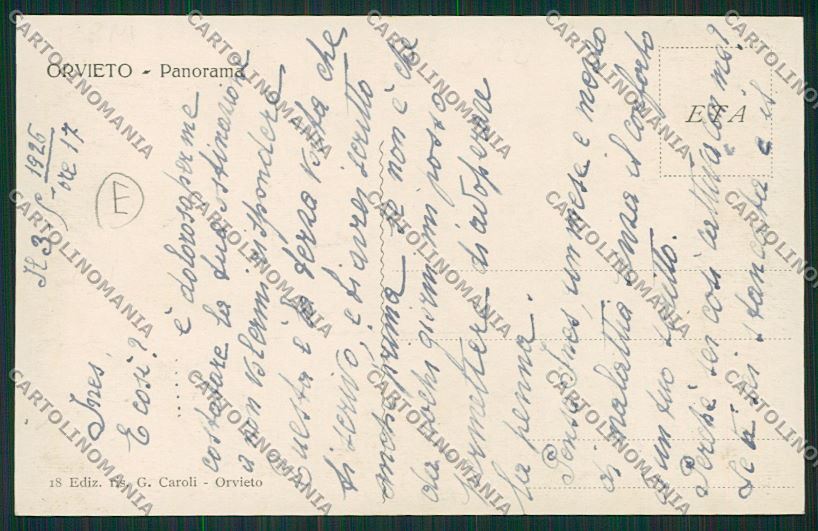 ORVIETO - Panorama
ETA
18 Ediz. ris. G. Caroli - Orvieto
E
Il 3 1926
ore 17
Ines,
E così?
..... è doloroso per me
costatare la tua ostinazione
a non volermi rispondere
Questa è la terza volta che
ti scrivo, e ti avrei scritto
anche prima se non è che
da pochi giorni mi posso
permettere di adoperare
la penna.
Pensa Ines, un mese e mezzo
di malattia senza il conforto
d'un tuo scritto.
Perché sei così cattiva con me?
Se ti sei stancata è il
CARTOLINOMANIA